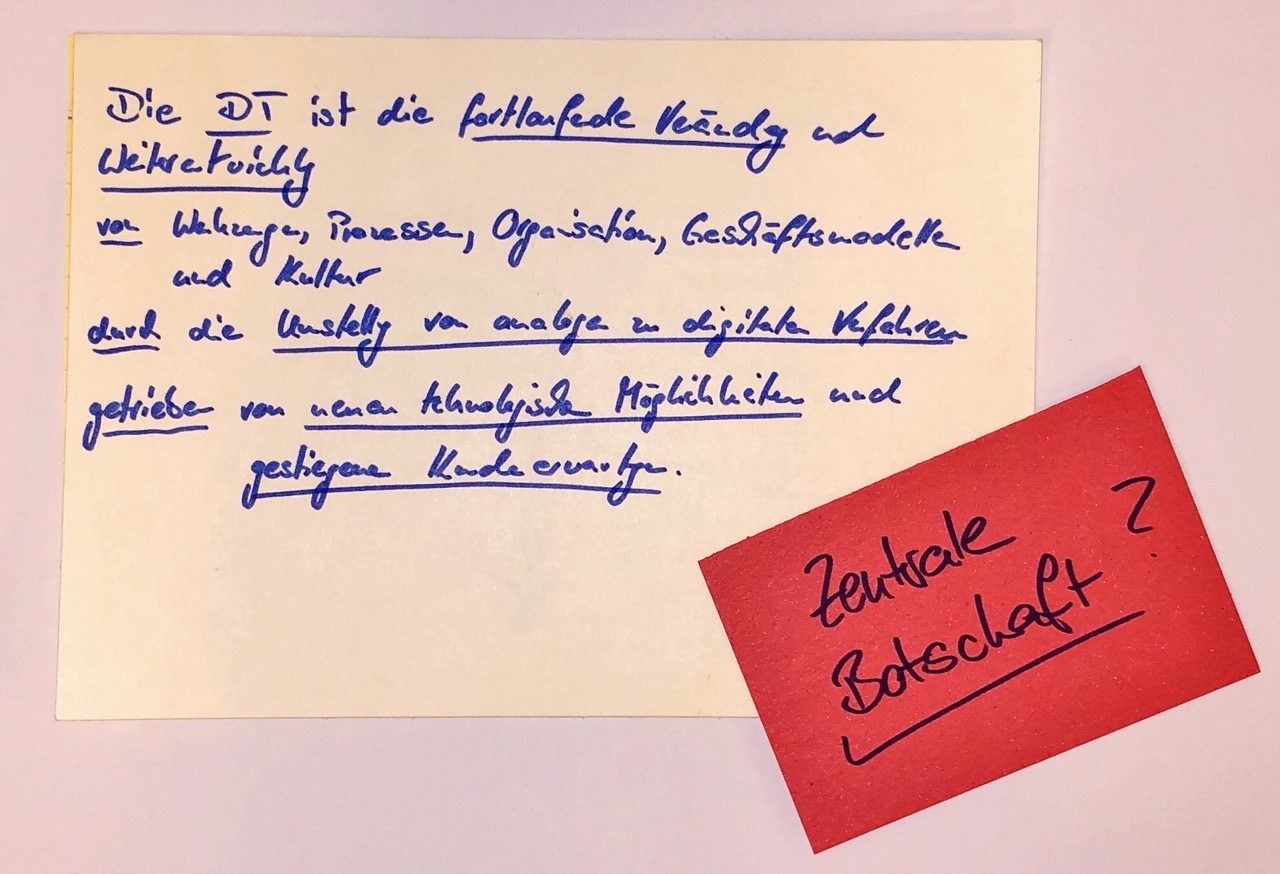 Die DT ist die fortlaufende Veränderung und
Weiterentwicklung
von Werkzeugen, Prozessen, Organisation, Geschäftsmodellen
und Kultur
durch die Umstellung von analogen zu digitalen Verfahren
getrieben von neuen technologischen Möglichkeiten und
gestiegenen Kundenerwartungen.
Zentrale ?
Botschaft